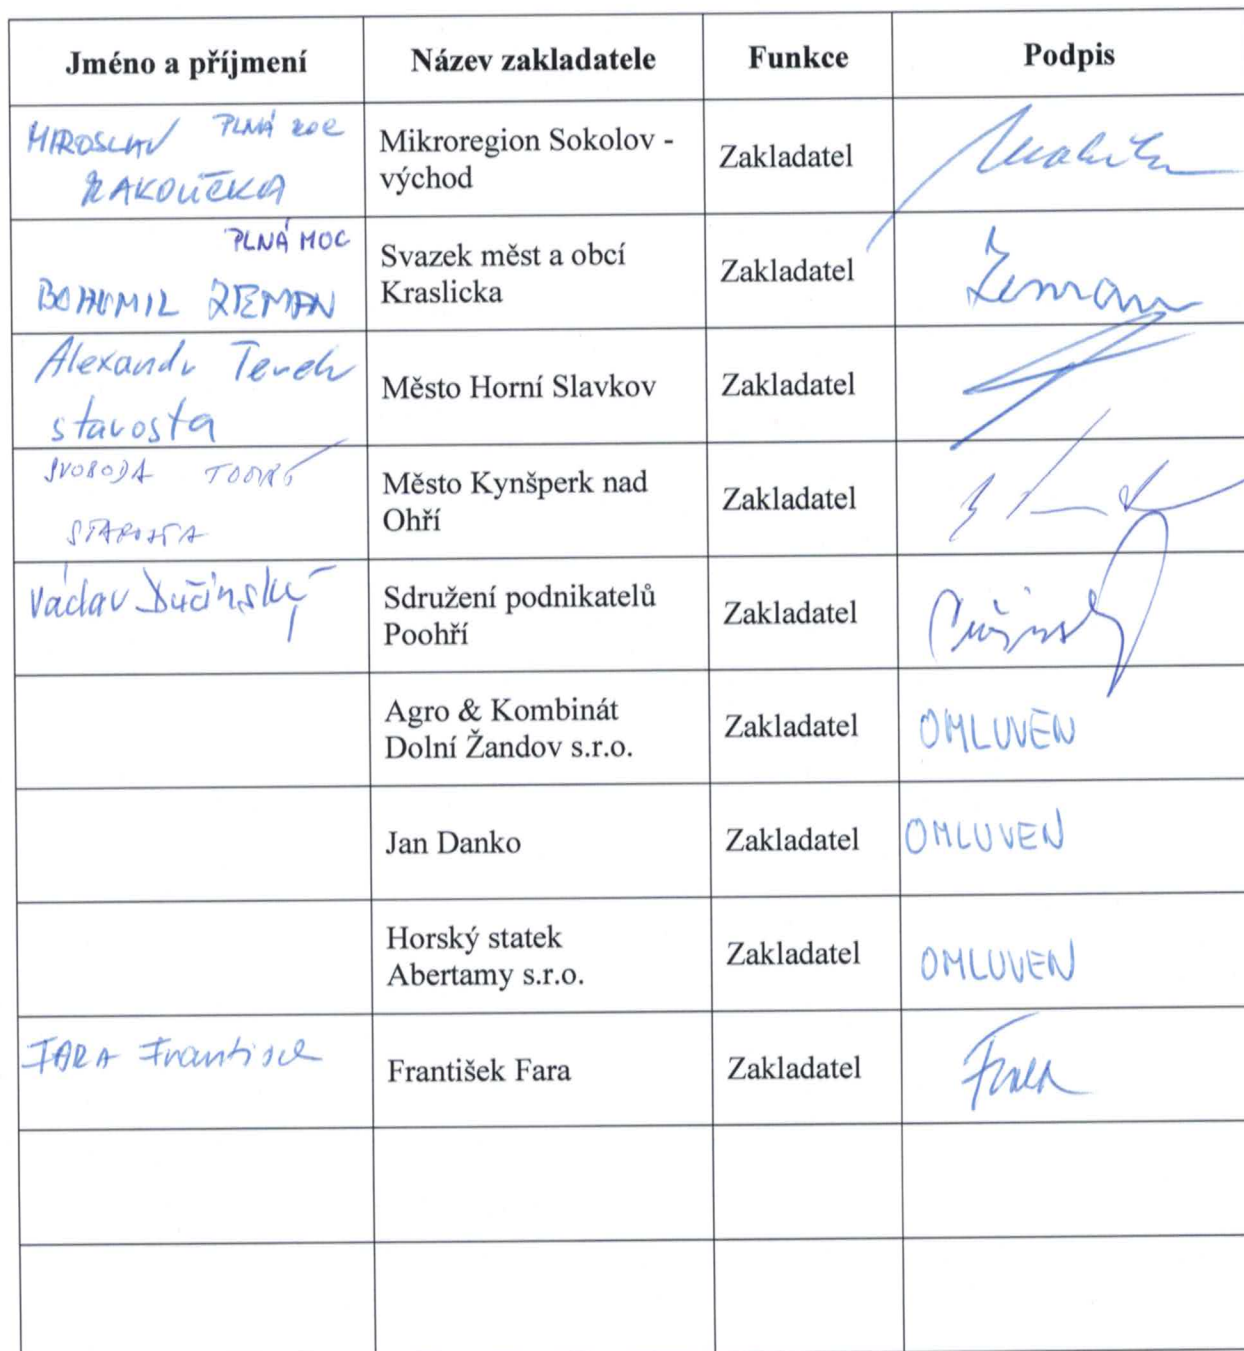 Jméno a příjmení
Název zakladatele
Funkce
Podpis
MIROSLAV PLNÁ MOC
MAKOVIČKA
Mikroregion Sokolov -
východ
Zakladatel
PLNÁ MOC
BOHUMIL ZEMAN
Svazek měst a obcí
Kraslicka
Zakladatel
Zeman
Alexandr Terek
starosta
Město Horní Slavkov
Zakladatel
SVOBODA TOMÁŠ
STAROSTA
Město Kynšperk nad
Ohří
Zakladatel
Václav Dučínský
Sdružení podnikatelů
Poohří
Zakladatel
Agro & Kombinát
Dolní Žandov s.r.o.
Zakladatel
OMLUVEN
Jan Danko
Zakladatel
OMLUVEN
Horský statek
Abertamy s.r.o.
Zakladatel
OMLUVEN
FARA František
František Fara
Zakladatel
Fara